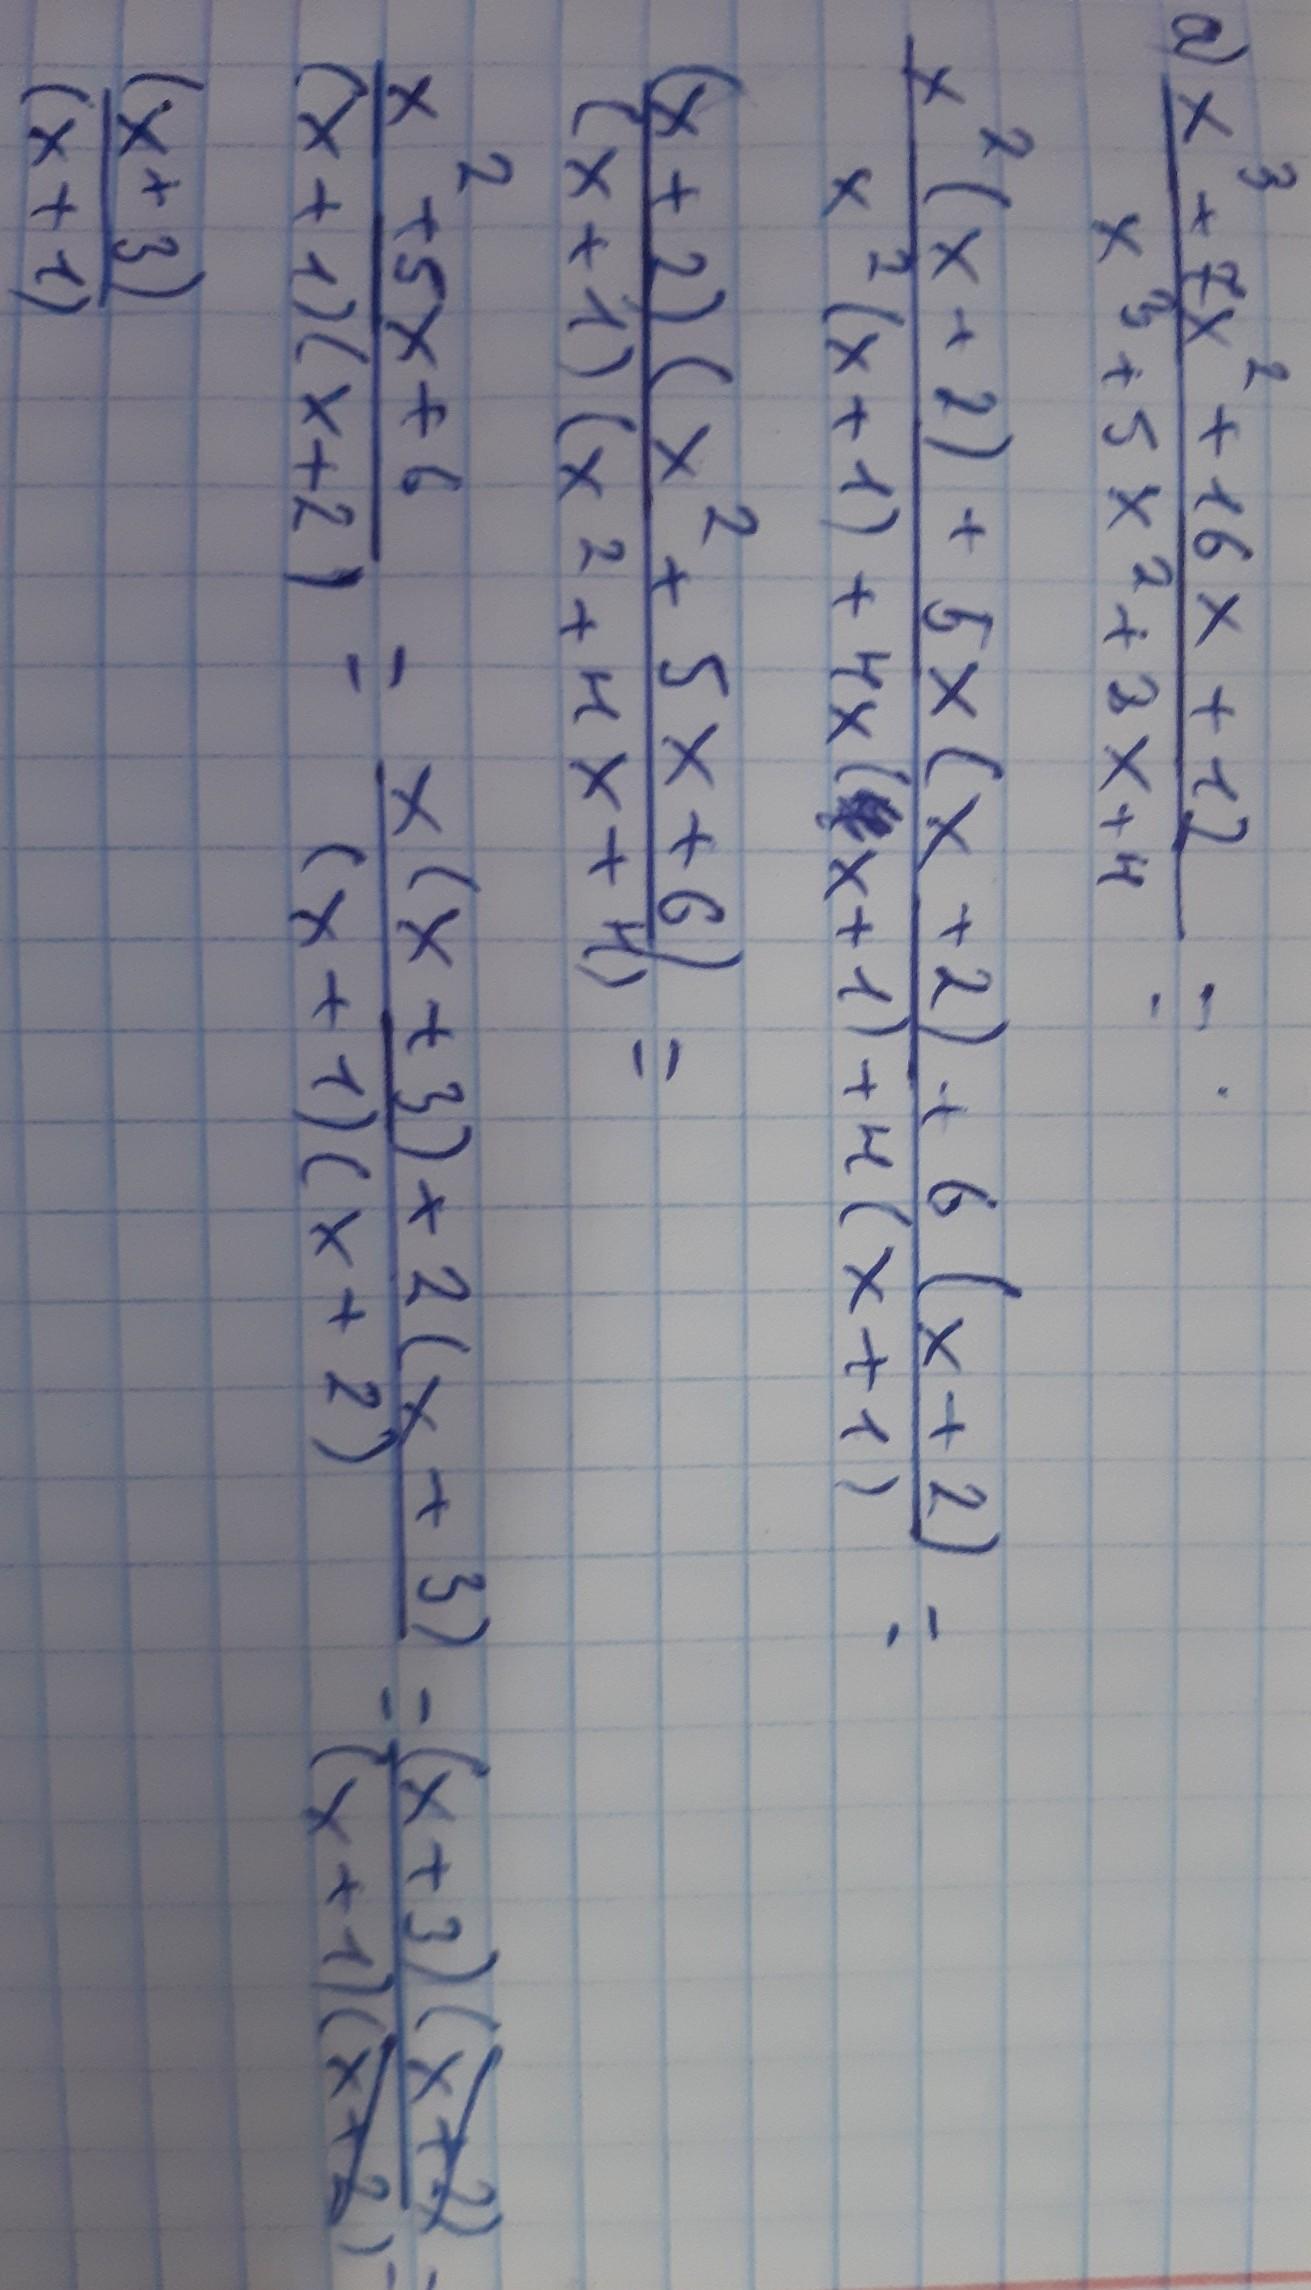 a) (x³ + 7x² + 16x + 12)/(x³ + 5x² + 3x + 4) =
(x²(x + 2) + 5x(x + 2) + 6(x + 2))/(x²(x + 1) + 4x(x + 1) + 4(x + 1)) =
((x + 2)(x² + 5x + 6))/((x + 1)(x² + 4x + 4)) =
(x² + 5x + 6)/((x + 1)(x + 2)) = (x(x + 3) + 2(x + 3))/((x + 1)(x + 2)) = ((x + 3)(x + 2))/((x + 1)(x + 2)) =
(x + 3)/(x + 1)